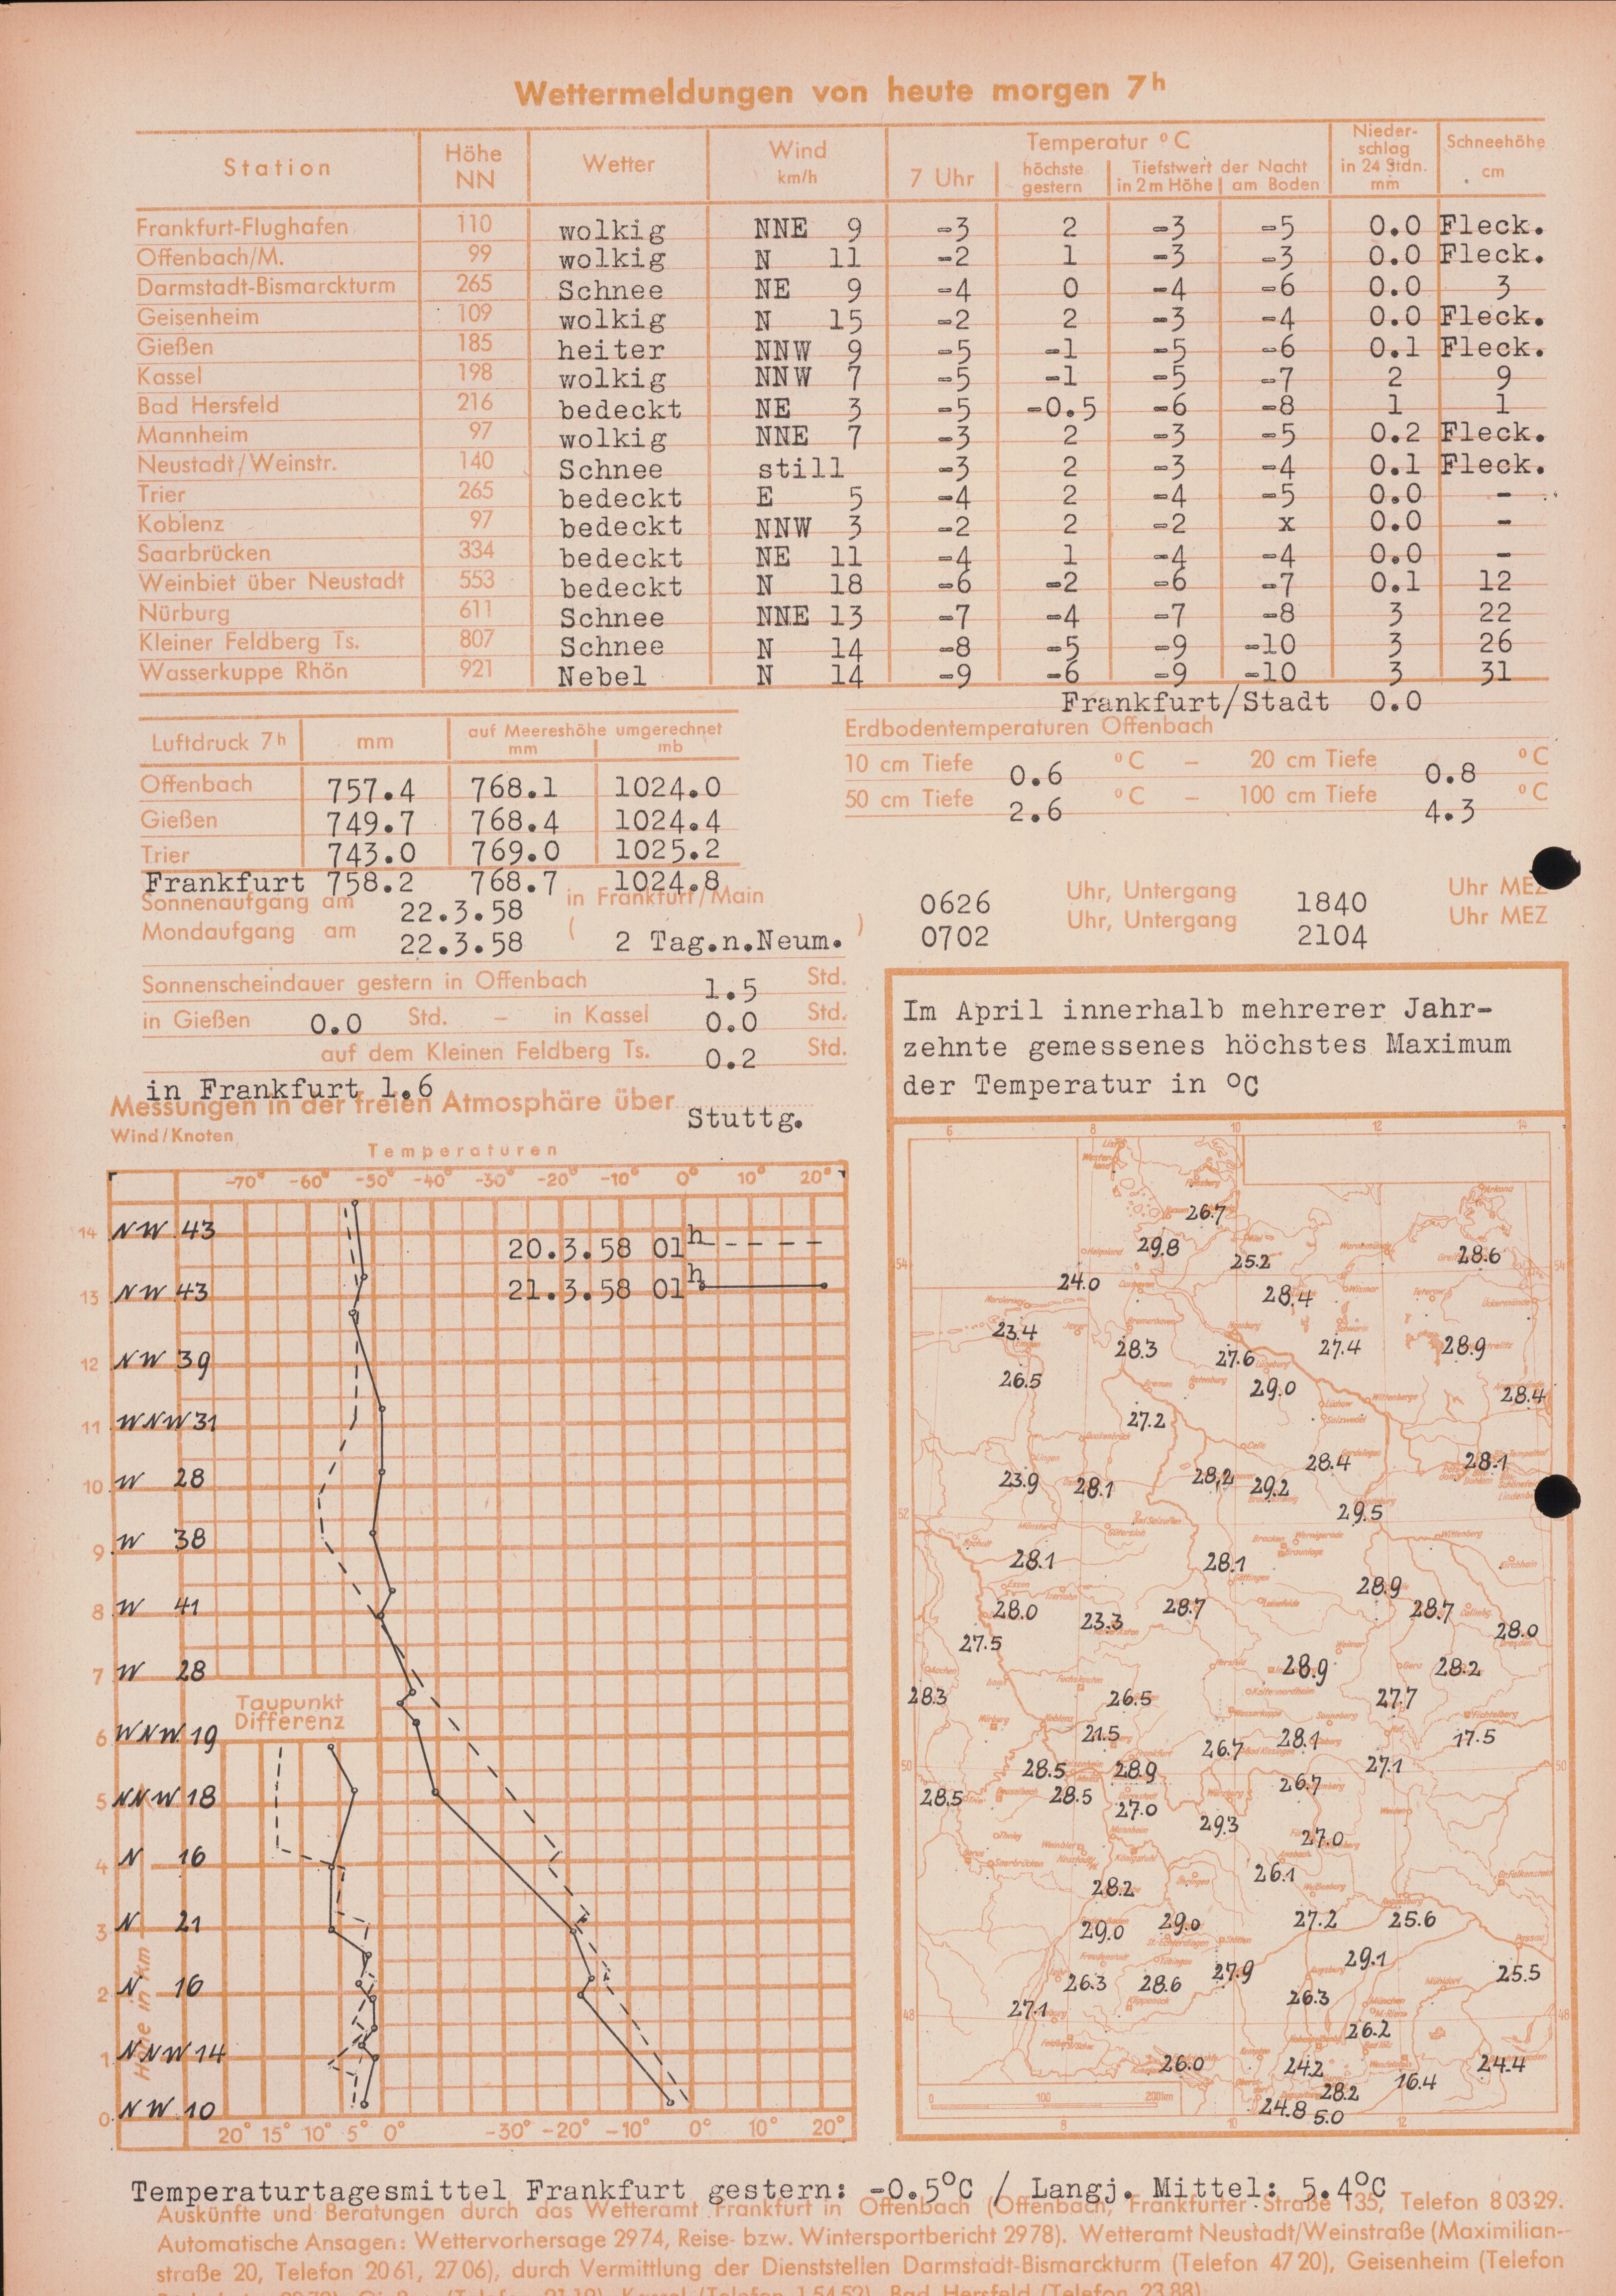 Wettermeldungen von heute morgen 7h
Station Höhe NN Wetter Wind km/h Temperatur °C Nieder-schlag in 24 Stdn. mm Schneehöhe cm
7 Uhr höchste gestern Tiefstwert der Nacht in 2 m Höhe am Boden
Frankfurt-Flughafen 110 wolkig NNE 9 -3 2 -3 -5 0.0 Fleck.
Offenbach/M. 99 wolkig N 11 -2 1 -3 -3 0.0 Fleck.
Darmstadt-Bismarckturm 265 Schnee NE 9 -4 0 -4 -6 0.0 3
Geisenheim 109 wolkig N 15 -2 2 -3 -4 0.0 Fleck.
Gießen 185 heiter NNW 9 -5 -1 -5 -6 0.1 Fleck.
Kassel 198 wolkig NNW 7 -5 -1 -5 -7 2 9
Bad Hersfeld 216 bedeckt NE 3 -5 -0.5 -6 -8 1 1
Mannheim 97 wolkig NNE 7 -3 2 -3 -5 0.2 Fleck.
Neustadt/Weinstr. 140 Schnee still -3 2 -3 -4 0.1 Fleck.
Trier 265 bedeckt E 5 -4 2 -4 -5 0.0 -
Koblenz 97 bedeckt NNW 3 -2 2 -2 x 0.0 -
Saarbrücken 334 bedeckt NE 11 -4 1 -4 -4 0.0 -
Weinbiet über Neustadt 553 bedeckt N 18 -6 -2 -6 -7 0.1 12
Nürburg 611 Schnee NNE 13 -7 -4 -7 -8 3 22
Kleiner Feldberg Ts. 807 Schnee N 14 -8 -5 -9 -10 3 26
Wasserkuppe Rhön 921 Nebel N 14 -9 -6 -9 -10 3 31
Frankfurt/Stadt 0.0
Luftdruck 7h mm auf Meereshöhe umgerechnet mm mb
Offenbach 757.4 768.1 1024.0
Gießen 749.7 768.4 1024.4
Trier 743.0 769.0 1025.2
Frankfurt 758.2 768.7 1024.8
Erdbodentemperaturen Offenbach
10 cm Tiefe 0.6 °C – 20 cm Tiefe 0.8 °C
50 cm Tiefe 2.6 °C – 100 cm Tiefe 4.3 °C
Sonnenaufgang am 22.3.58 in Frankfurt/Main 0626 Uhr, Untergang 1840 Uhr MEZ
Mondaufgang am 22.3.58 ( 2 Tag.n.Neum. ) 0702 Uhr, Untergang 2104 Uhr MEZ
Sonnenscheindauer gestern in Offenbach 1.5 Std.
in Gießen 0.0 Std. – in Kassel 0.0 Std.
auf dem Kleinen Feldberg Ts. 0.2 Std.
in Frankfurt 1.6
Messungen in der freien Atmosphäre über Stuttg.
Wind/Knoten
Temperaturen
-70° -60° -50° -40° -30° -20° -10° 0° 10° 20°
14 NW 43
20.3.58 01h
13 NW 43
21.3.58 01h
12 NW 39
11 WNW 31
10 W 28
9 W 38
8 W 41
7 W 28
Taupunkt
Differenz
6 WNW 19
5 NNW 18
4 N 16
3 N 21
2 N 16
1 NNW 14
0 NW 10
Höhe in km
20° 15° 10° 5° 0° -30° -20° -10° 0° 10° 20°
Im April innerhalb mehrerer Jahr-
zehnte gemessenes höchstes Maximum
der Temperatur in °C
6 8 10 12 14
26.7
29.8 25.2 28.6
54 24.0 28.4 54
23.4 28.3 27.6 27.4 28.9
26.5 29.0 28.4
27.2
23.9 28.1 28.2 29.2 28.4 28.1
52 29.5
28.1 28.1 28.9
28.0 23.3 28.7 28.7 28.0
27.5 28.9 28.2
28.3 26.5 27.7
21.5 26.7 28.1 17.5
50 28.5 28.9 27.1 50
28.5 28.5 27.0 26.7
29.3 27.0
28.2 26.1
29.0 29.0 27.2 25.6
26.3 28.6 27.9 29.1 25.5
48 27.1 26.3 48
26.2
26.0 24.2 16.4 24.4
28.2
24.8 5.0
0 100 200km
8 10 12
Temperaturtagesmittel Frankfurt gestern: -0.5°C / Langj. Mittel: 5.4°C
Auskünfte und Beratungen durch das Wetteramt Frankfurt in Offenbach (Offenbach, Frankfurter Straße 135, Telefon 8 03 29.
Automatische Ansagen: Wettervorhersage 29 74, Reise- bzw. Wintersportbericht 29 78). Wetteramt Neustadt/Weinstraße (Maximilian-
straße 20, Telefon 20 61, 27 06), durch Vermittlung der Dienststellen Darmstadt-Bismarckturm (Telefon 47 20), Geisenheim (Telefon
Kassel (Telefon 1 54 52), Bad Hersfeld (Telefon 23 88)